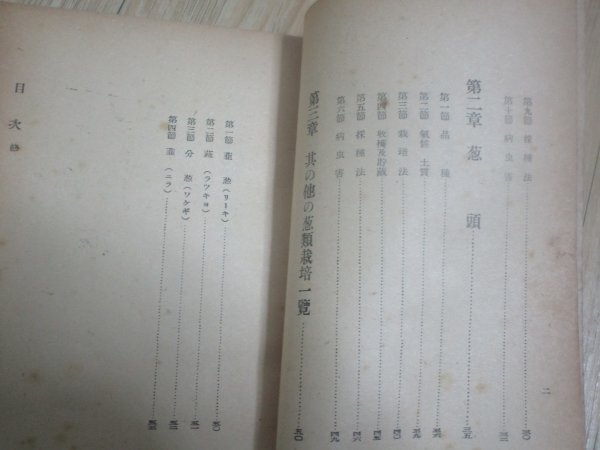 第九節 採種法……三〇
第十節 病虫害……三三
第二章 葱頭……三五
第一節 品種……三六
第二節 氣候 土質……三九
第三節 栽培法……四〇
第四節 收穫及貯藏……四五
第五節 採種法……四六
第六節 病虫害……四九
第三章 其の他の葱類栽培一覽……五〇
二
第一節 韮葱(リーキ)……五〇
第二節 薤(ラツキョ)……五一
第三節 分葱(ワケギ)……五二
第四節 韮(ニラ)……五三
目次 終